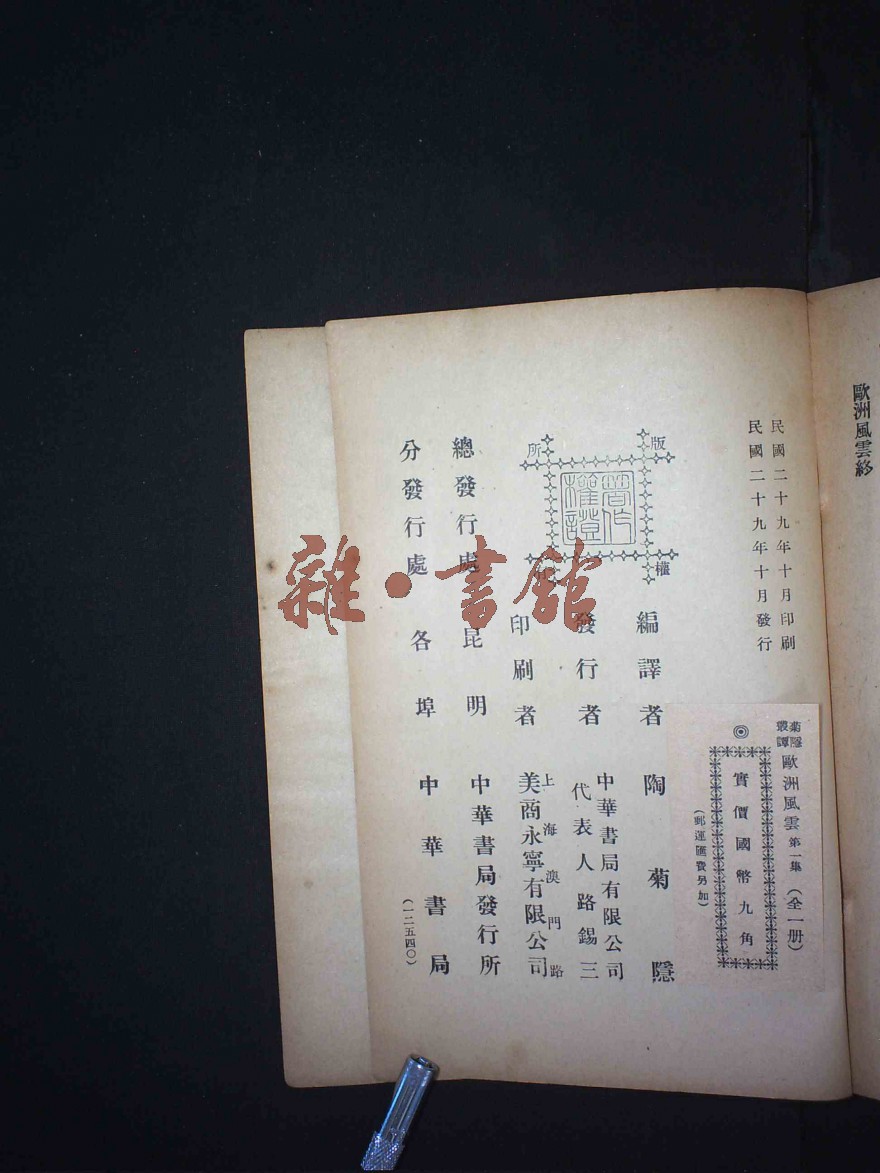 歐洲風雲終
民國二十九年十月印刷
民國二十九年十月發行
菊隱叢譚
歐洲風雲第一集（全一册）
◎
實價國幣九角
（郵運匯費另加）
版權所有
著作權證
編譯者 陶菊隱
發行者 中華書局有限公司
代表人路錫三
印刷者 上海澳門路
美商永寧有限公司
總發行處 昆明 中華書局發行所
分發行處 各埠 中華書局
（一二五四〇）
雜·書館